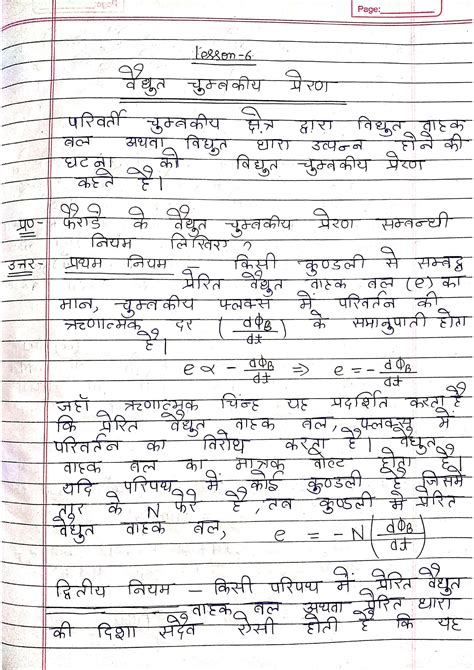 Page:
Lesson-6
वैद्युत चुम्बकीय प्रेरण
परिवर्ती चुम्बकीय क्षेत्र द्वारा विद्युत वाहक
बल अथवा विद्युत धारा उत्पन्न होने की
घटना को विद्युत चुम्बकीय प्रेरण
कहते हैं।
प्र०- फैराडे के वैद्युत चुम्बकीय प्रेरण सम्बन्धी
नियम लिखिए ?
उत्तर- प्रथम नियम - किसी कुण्डली से सम्बद्ध
प्रेरित वैद्युत वाहक बल (e) का
मान, चुम्बकीय फ्लक्स में परिवर्तन की
ऋणात्मक दर (dΦB/dt) के समानुपाती होता
है।
e ∝ - dΦB/dt ⇒ e = - dΦB/dt
जहाँ ऋणात्मक चिन्ह यह प्रदर्शित करता है
कि प्रेरित वैद्युत वाहक बल, फ्लक्स में
परिवर्तन का विरोध करता है। वैद्युत
वाहक बल का मात्रक वोल्ट होता है।
यदि परिपथ में कोई कुण्डली है जिसमें
तार के N फेरे हैं, तब कुण्डली में प्रेरित
वैद्युत वाहक बल, e = - N(dΦB/dt)
द्वितीय नियम - किसी परिपथ में प्रेरित वैद्युत
वाहक बल अथवा प्रेरित धारा
की दिशा सदैव ऐसी होती है कि यह